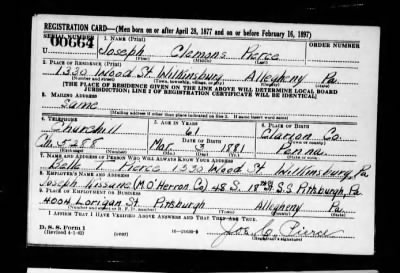 REGISTRATION CARD—(Men born on or after April 28, 1877 and on or before February 16, 1897)
SERIAL NUMBER 1. NAME (Print) ORDER NUMBER
U 00664 Joseph Clemans Pierce
(First) (Middle) (Last)
2. PLACE OF RESIDENCE (Print)
1330 Wood St. Wilkinsburg Allegheny Pa.
(Number and street) (Town, township, village, or city) (County) (State)
[THE PLACE OF RESIDENCE GIVEN ON THE LINE ABOVE WILL DETERMINE LOCAL BOARD
JURISDICTION; LINE 2 OF REGISTRATION CERTIFICATE WILL BE IDENTICAL]
3. MAILING ADDRESS
Same
[Mailing address if other than place indicated on line 2. If same insert word same]
4. TELEPHONE 5. AGE IN YEARS 6. PLACE OF BIRTH
Churchill 61 Clarion Co.
DATE OF BIRTH
Ch. 5288 Mar. 3 1881 Penna.
7. NAME AND ADDRESS OF PERSON WHO WILL ALWAYS KNOW YOUR ADDRESS
Belle Pierce 1330 Wood St Wilkinsburg, Pa
8. EMPLOYER'S NAME AND ADDRESS
Joseph (M. O'Herron Co) 48 S. 18th St. S.S Pittsburgh, Pa
9. PLACE OF EMPLOYMENT OR BUSINESS
4004 Lorigan St. Pittsburgh Allegheny Pa
(Number and street or R. F. D. number) (Town) (County) (State)
I AFFIRM THAT I HAVE VERIFIED ABOVE ANSWERS AND THAT THEY ARE TRUE.
D. S. S. Form 1
(Revised 4-1-42) (over) Jos. C. Pierce
(Registrant's signature)